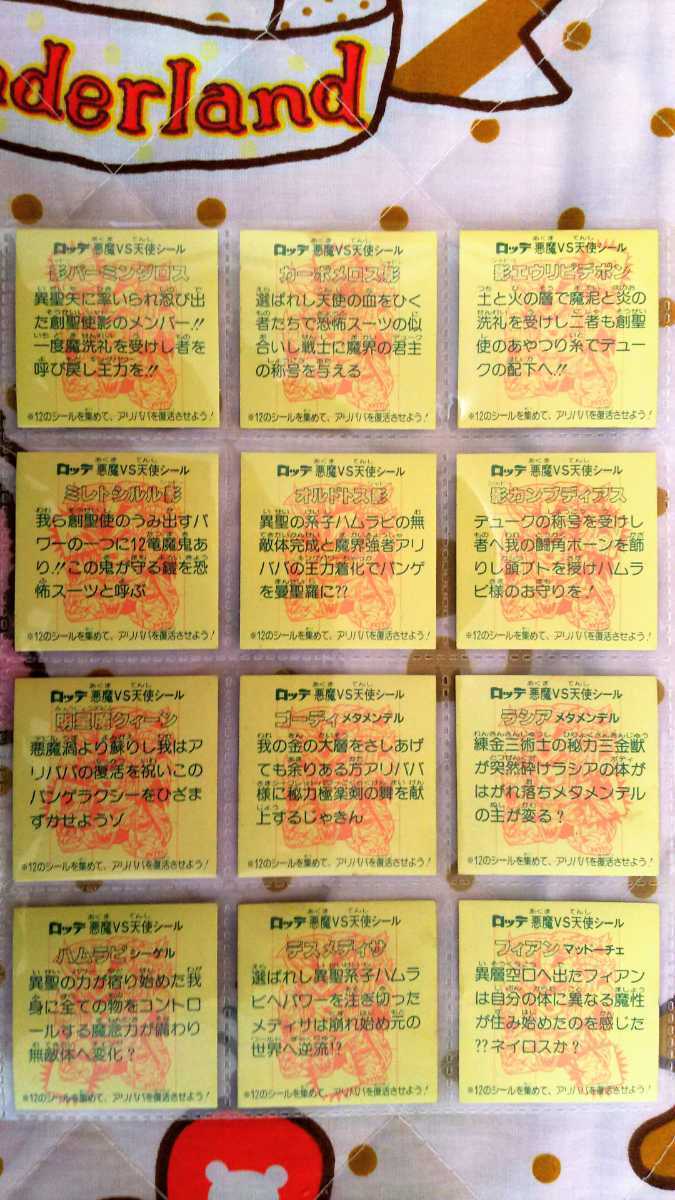 nderland
ロッテ 悪魔VS天使シール
影バーミンクロス
異聖矢に率いられ忍び出
た創聖使影のメンバー!!
一度魔洗礼を受けし者を
呼び戻し王力を!!
※12のシールを集めて、アリババを復活させよう!
ロッテ 悪魔VS天使シール
カーボメロス影
選ばれし天使の血をひく
者たちで恐怖スーツの似
合いし戦士に魔界の君主
の称号を与える
※12のシールを集めて、アリババを復活させよう!
ロッテ 悪魔VS天使シール
影エウリピデポン
土と火の層で魔泥と炎の
洗礼を受けし二者も創聖
使のあやつり糸でデュー
クの配下へ!!
※12のシールを集めて、アリババを復活させよう!
ロッテ 悪魔VS天使シール
ミレトシルル影
我ら創聖使のうみ出すパ
ワーの一つに12竜魔鬼あ
り!!この鬼が守る鎧を恐
怖スーツと呼ぶ
※12のシールを集めて、アリババを復活させよう!
ロッテ 悪魔VS天使シール
オルドトス影
異聖の系子ハムラビの無
敵体完成と魔界強者アリ
ババの王力着化でパンゲ
を曼聖羅に??
※12のシールを集めて、アリババを復活させよう!
ロッテ 悪魔VS天使シール
影カンブディアス
デュークの称号を受けし
者へ我の闘角ボーンを飾
りし頭ブトを授けハムラ
ビ様のお守りを!
※12のシールを集めて、アリババを復活させよう!
ロッテ 悪魔VS天使シール
明星魔クィーン
悪魔渦より蘇りし我はア
リババの復活を祝いこの
パンゲラクシーをひざま
ずかせようゾ
※12のシールを集めて、アリババを復活させよう!
ロッテ 悪魔VS天使シール
ゴーディ メタメンデル
我の金の大層をさしあげ
ても余りある方アリババ
様に秘力極楽剣の舞を献
上するじゃきん
※12のシールを集めて、アリババを復活させよう!
ロッテ 悪魔VS天使シール
ラシア メタメンデル
錬金三術士の秘力三金獣
が突然砕けラシアの体が
はがれ落ちメタメンデル
の主が変る?
※12のシールを集めて、アリババを復活させよう!
ロッテ 悪魔VS天使シール
ハムラビ シーゲル
異聖の力が宿り始めた我
身に全ての物をコントロ
ールする魔念力が備わり
無敵体へ変化?
※12のシールを集めて、アリババを復活させよう!
ロッテ 悪魔VS天使シール
デスメディサ
選ばれし異聖系子ハムラ
ビへパワーを注ぎ切った
メディサは崩れ始め元の
世界へ逆流!?
※12のシールを集めて、アリババを復活させよう!
ロッテ 悪魔VS天使シール
フィアン マッドーチェ
異層空口へ出たフィアン
は自分の体に異なる魔性
が住み始めたのを感じた
??ネイロスか?
※12のシールを集めて、アリババを復活させよう!